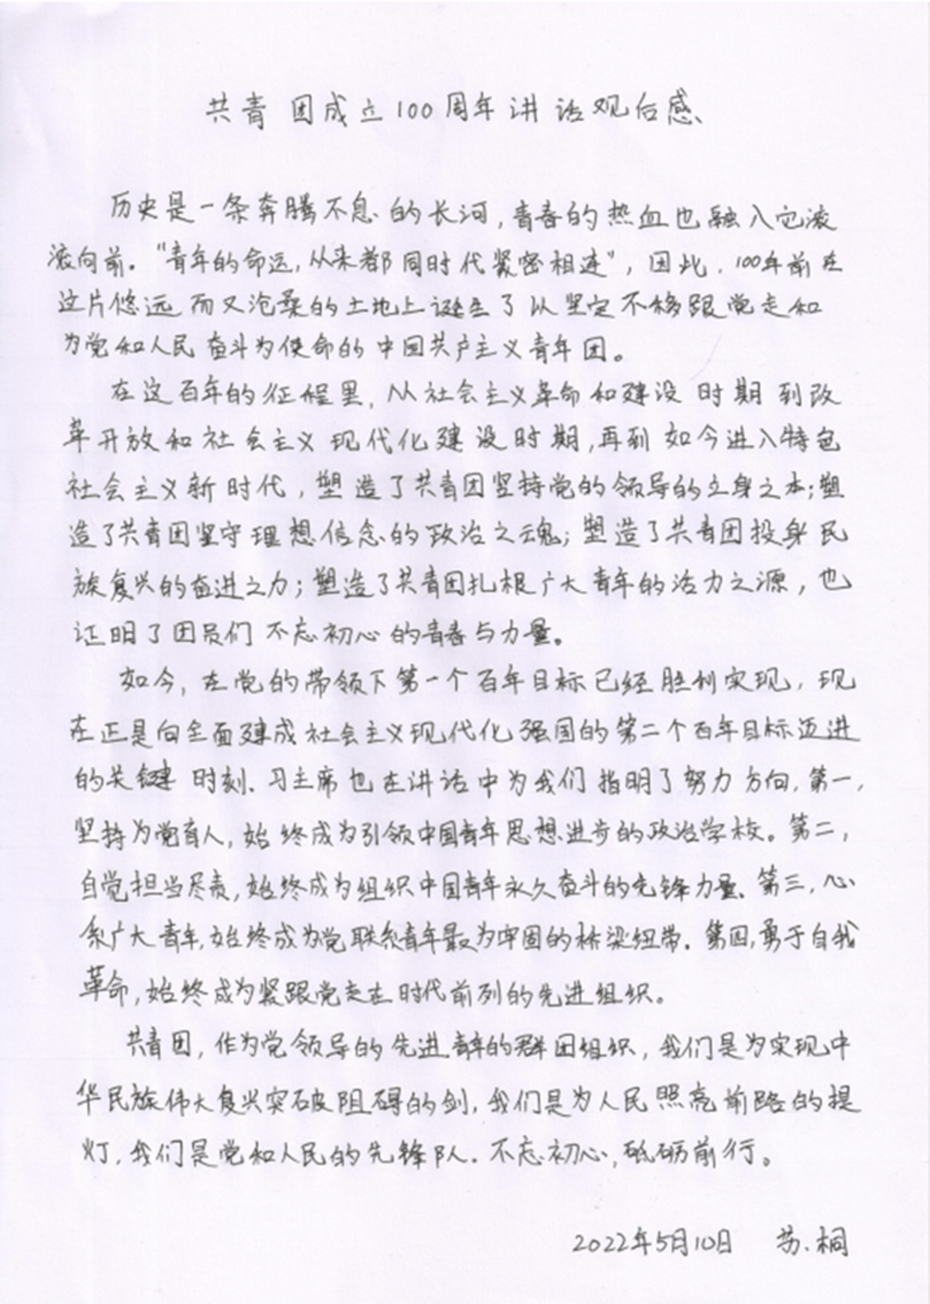 共青团成立100周年讲话观后感
历史是一条奔腾不息的长河,青春的热血也融入它滚
滚向前。"青年的命运,从来都同时代紧密相连",因此,100年前在
这片悠远而又沧桑的土地上诞生了以坚定不移跟党走和
为党和人民奋斗为使命的中国共产主义青年团。
在这百年的征程里,从社会主义革命和建设时期到改
革开放和社会主义现代化建设时期,再到如今进入特色
社会主义新时代,塑造了共青团坚持党的领导的立身之本;塑
造了共青团坚守理想信念的政治之魂;塑造了共青团投身民
族复兴的奋进之力;塑造了共青团扎根广大青年的活力之源,也
证明了团员们不忘初心的青春与力量。
如今,在党的带领下第一个百年目标已经胜利实现,现
在正是向全面建成社会主义现代化强国的第二个百年目标迈进
的关键时刻。习主席也在讲话中为我们指明了努力方向,第一,
坚持为党育人,始终成为引领中国青年思想进步的政治学校。第二,
自觉担当尽责,始终成为组织中国青年永久奋斗的先锋力量。第三,心
系广大青年,始终成为党联系青年最为牢固的桥梁纽带。第四,勇于自我
革命,始终成为紧跟党走在时代前列的先进组织。
共青团,作为党领导的先进青年的群团组织,我们是为实现中
华民族伟大复兴突破阻碍的剑,我们是为人民照亮前路的提
灯,我们是党和人民的先锋队。不忘初心,砥砺前行。
2022年5月10日 苏桐